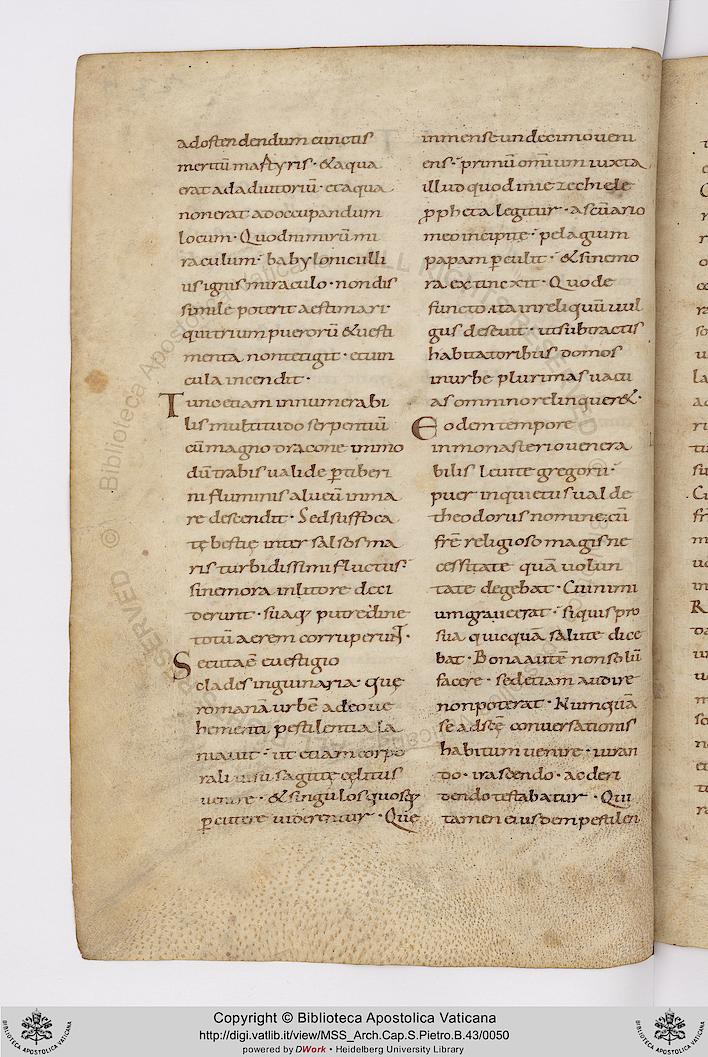 ad ostendendum cunctis
meritū martyris · & aqua
erat ad adiutoriū · et aqua
non erat ad occupandum
locum · Quod nimirū mi
raculum · babylonico illi
us ignis miraculo · non dis
simile poterit aestimari ·
qui trium puerorū & uesti
menta non tetigit · et uin
cula incendit ·
Tunc etiam innumerabi
lis multitudo serpentiū
cū magno dracone in mo
dū trabis ualide p tiberi
ni fluminis alueū in ma
re descendit · Sed suffoca
tę bestię inter salsos ma
ris turbidissimi fluctus ·
sine mora in litore deci
derunt · suaq; putredine
totū aerem corruperunt ·
Secuta ē e uestigio
clades inguinaria · quę
romanā urbē adeo ue
hementi pestilentia la
niauit · ut etiam corpo
rali uisu sagittę cęlitus
uenire · & singulos quosq;
pcutere uiderentur · Quę
in mense undecimo ueni
ens · primū omnium iuxta
illud quod in iezechiele
ppheta legitur · a sc̄uario
meo incipite · pelagium
papam pculit · & sine mo
ra extinxit · Quo de
functo · ita in reliquū uul
gus deseuit · ut subtractis
habitatoribus domos
in urbe plurimas uacu
as omnino relinqueret ·
Eodem tempore
in monasterio uenera
bilis leuite gregorii ·
puer inquietus ualde
theodorus nomine, cū
frē religioso magis ne
cessitate quā uolun
tate degebat · Cui nimi
um graue erat · si quis pro
sua quicquā salute dice
bat · Bona autē non solū
facere · sed etiam audire
non poterat · Numquā
se ad scę conuersationis
habitum uenire · iuran
do · irascendo · ac deri
dendo testabatur · Qui
tamen eiusdem pestilen
Copyright © Biblioteca Apostolica Vaticana
http://digi.vatlib.it/view/MSS_Arch.Cap.S.Pietro.B.43/0050
powered by DWork • Heidelberg University Library